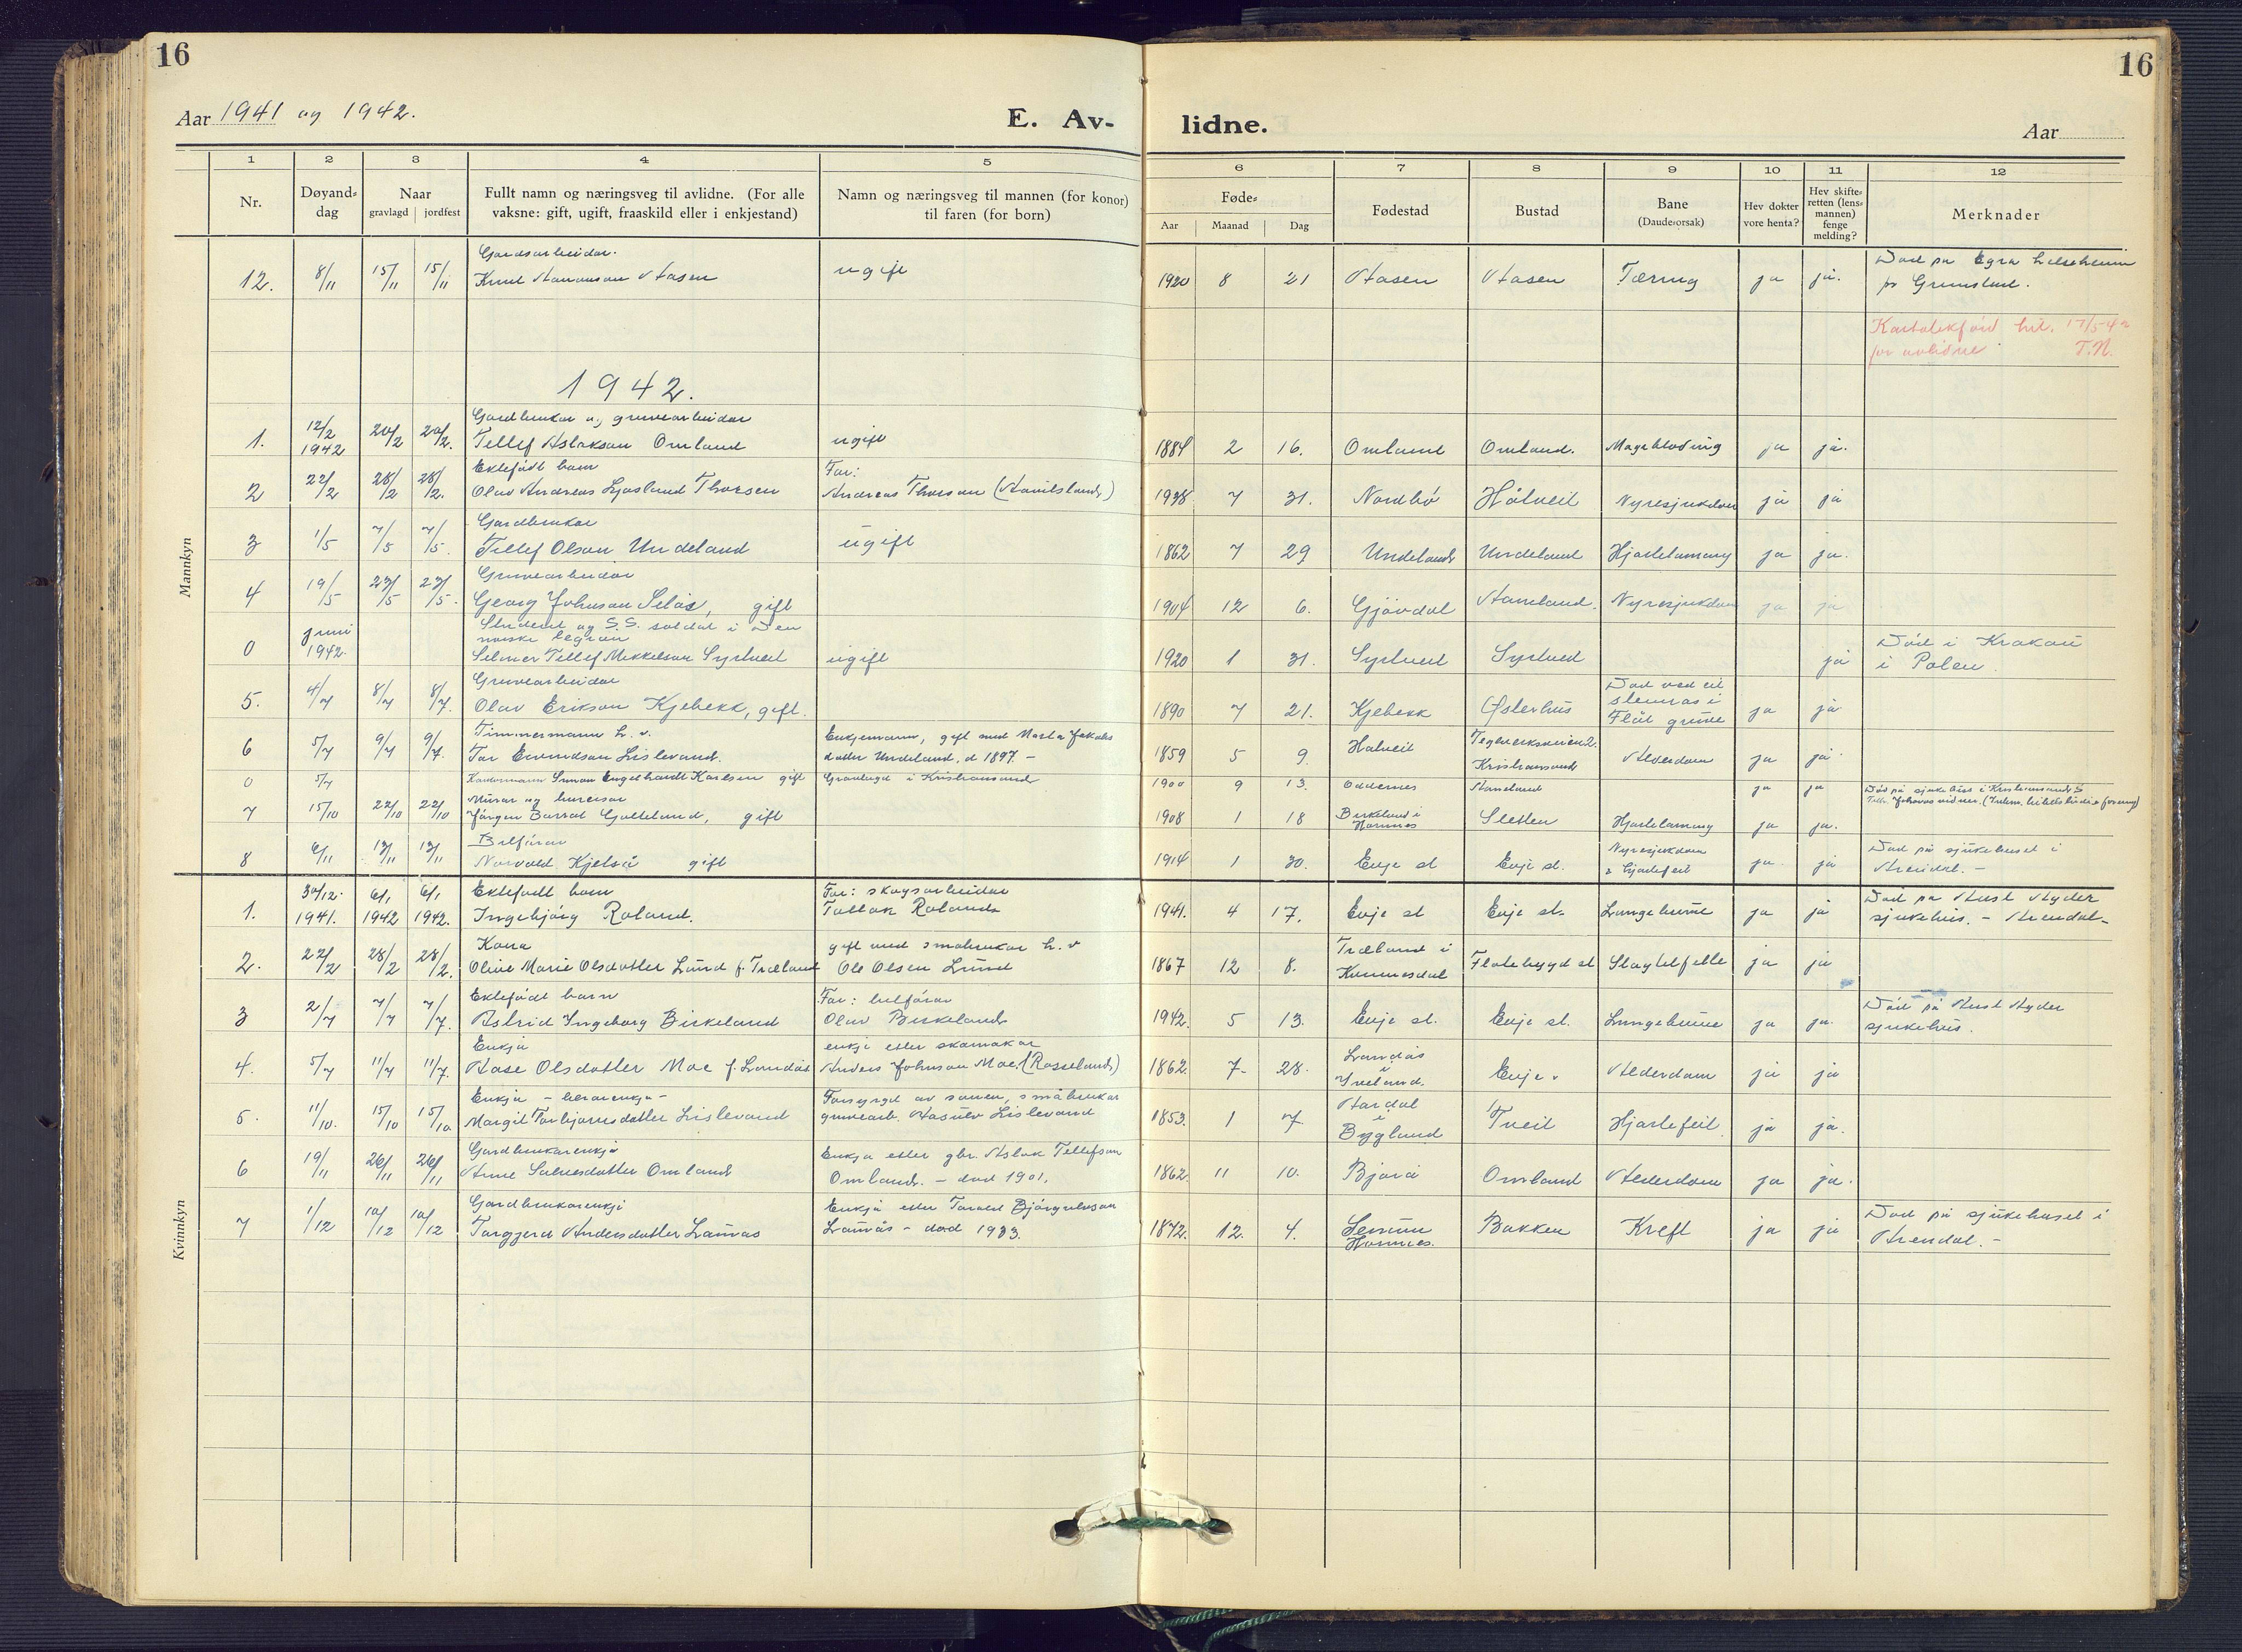 16
16
Aar 1941 og 1942.
E. Av-
lidne.
Aar
1 2 3 4 5 6 7 8 9 10 11 12
Nr.
Døyand-
dag
Naar
gravlagd jordfest
Fullt namn og næringsveg til avlidne. (For alle
vaksne: gift, ugift, fraaskild eller i enkjestand)
Namn og næringsveg til mannen (for konor)
til faren (for born)
Føde-
Aar Maanad Dag
Fødestad
Bustad
Bane
(Daudeorsak)
Hev dokter
vore henta?
Hev skifte-
retten (lens-
mannen)
fenge
melding?
Merknader
Mannkyn
Gardsarbeidar.
12. 8/11 15/11 15/11 Knut Aamundson Aasen ugift 1920 8 21 Aasen Aasen Tæring ja ja.
Død på Egra helseheim
pr Grimstad.
17/5 42
for avlidne T.N.
1942.
Gardbrukar og gruvearbeidar
1. 12/2 1942 20/2 20/2. Tellef Aslakson Omland ugift 1884 2 16. Omland Omland. Magebløding ja ja.
Ektefødt barn
Far:
2 22/2 28/2 28/2. Olav Andreas Thorsen Andreas Thorsen 1938 7 31. Nordbø Håtveit Nyresjukdom ja ja
Gardbrukar
3 1/5 7/5 7/5. Tellef Olson Undeland ugift 1862 7 29 Undeland Undeland Hjartelamang ja ja.
Gruvearbeidar
4 19/5 23/5 23/5. Georg Johnson Selås, gift 1904 12 6. Gjøvdal Aaneland. Nyresjukdom ja ja
Student og S.S. soldat i Den
norske legion
0 juni 1942. Selmer Tellef Mikkelson Syrtveit ugift 1920 1 31. Syrtveit Syrtveit ja
Død i Krakau
i Polen.
Gruvearbeidar
5. 4/7 8/7 8/7. Olav Erikson Kjebekk, gift. 1890 7 21. Kjebekk Østerhus
Død ved eit
steinras i
Flåt gruve
ja ja
Timmermann h. v.
6 5/7 9/7 9/7. Tor Eivindson Lislevand.
Enkjemann, gift med Marta Jakobs
dotter Undeland, d 1897. -
1859 5 9. Hatveit
Kristiansand
Alderdom ja ja
0 5/7 Simon Engelhardt Karlsen gift Gravlagd i Kristiansand 1900 9 13. Oddernes Aaneland ja ja
Død på sjukehus i Kristiansand S
Murar og
7 15/10 22/10 22/10 Jørgen Galteland, gift 1908 1 18
Birkeland i
Hornnes
Sletten Hjartelamang ja ja.
Bilførar
8 6/11 13/11 13/11 Norvald Kjetså gift 1914 1 30. Evje st Evje st.
Nyresjukdom
& hjartefeil
ja ja
Død på sjukehuset i
Arendal. -
Kvinnkyn
Ektefødt barn
Far: skogsarbeidar
1. 30/12. 1941. 6/1 1942 6/1 1942. Ingebjørg Roland. Tallak Roland 1941. 4 17. Evje st Evje st. Lungebetennelse ja ja
Død på Aust Agder
sjukehus. - Arendal.
Kona
gift med småbrukar h. v
2. 22/2 28/2 28/2. Olive Marie Olsdotter Lund f. Træland Ole Olsen Lund 1867 12 8.
Træland i
Flatebygd st Slagtilfelle ja ja
Ektefødt barn
Far: bilførar
3 2/7 7/7 7/7. Astrid Ingeborg Birkeland Olav Birkeland 1942. 5 13. Evje st. Evje st. ja ja
Død på Aust Agder
sjukehus.
Enkja
enkje etter skomakar
4. 5/7 11/7 11/7. Aase Olsdotter Moe f. Landås Anders Johnson Moe (Rosseland) 1862. 7 28.
Landås
i
Iveland.
Evje. Alderdom ja ja
Enkja -
Forsyrgd av sonen, småbrukar
5. 11/10. 15/10 15/10 Margit Torbjørnsdotter Lislevand gruvearb. Aasulv Lislevand 1853. 1 7
Aardal
i
Bygland
Tveit Hjartefeil ja ja.
Gardbrukarenkje
Enkje etter gbr. Aslak Tellefson
6 19/11 26/11 26/11 Anne Salvesdotter Omland Omland. - død 1901. 1862. 11 10. Bjorå Omland Alderdom ja ja.
Gardbrukarenkje
Enkje etter Torvald
7 1/12 10/12 10/12 Torggjerd Andersdotter Launås Launås - død 1933. 1872. 12. 4.
Senum
Hornnes.
Bakken Kreft ja ja
Død på sjukehuset i
Arendal. -